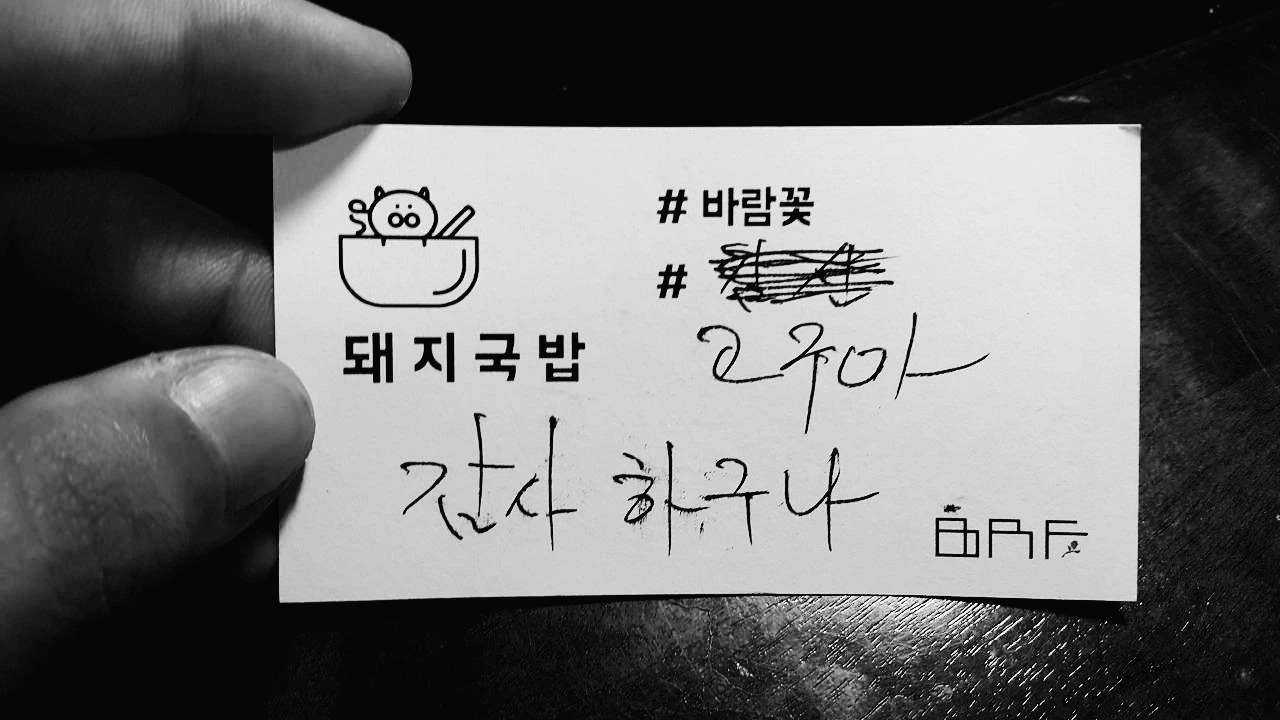 # 바람꽃
#
고주아
돼지국밥
감사 하구나